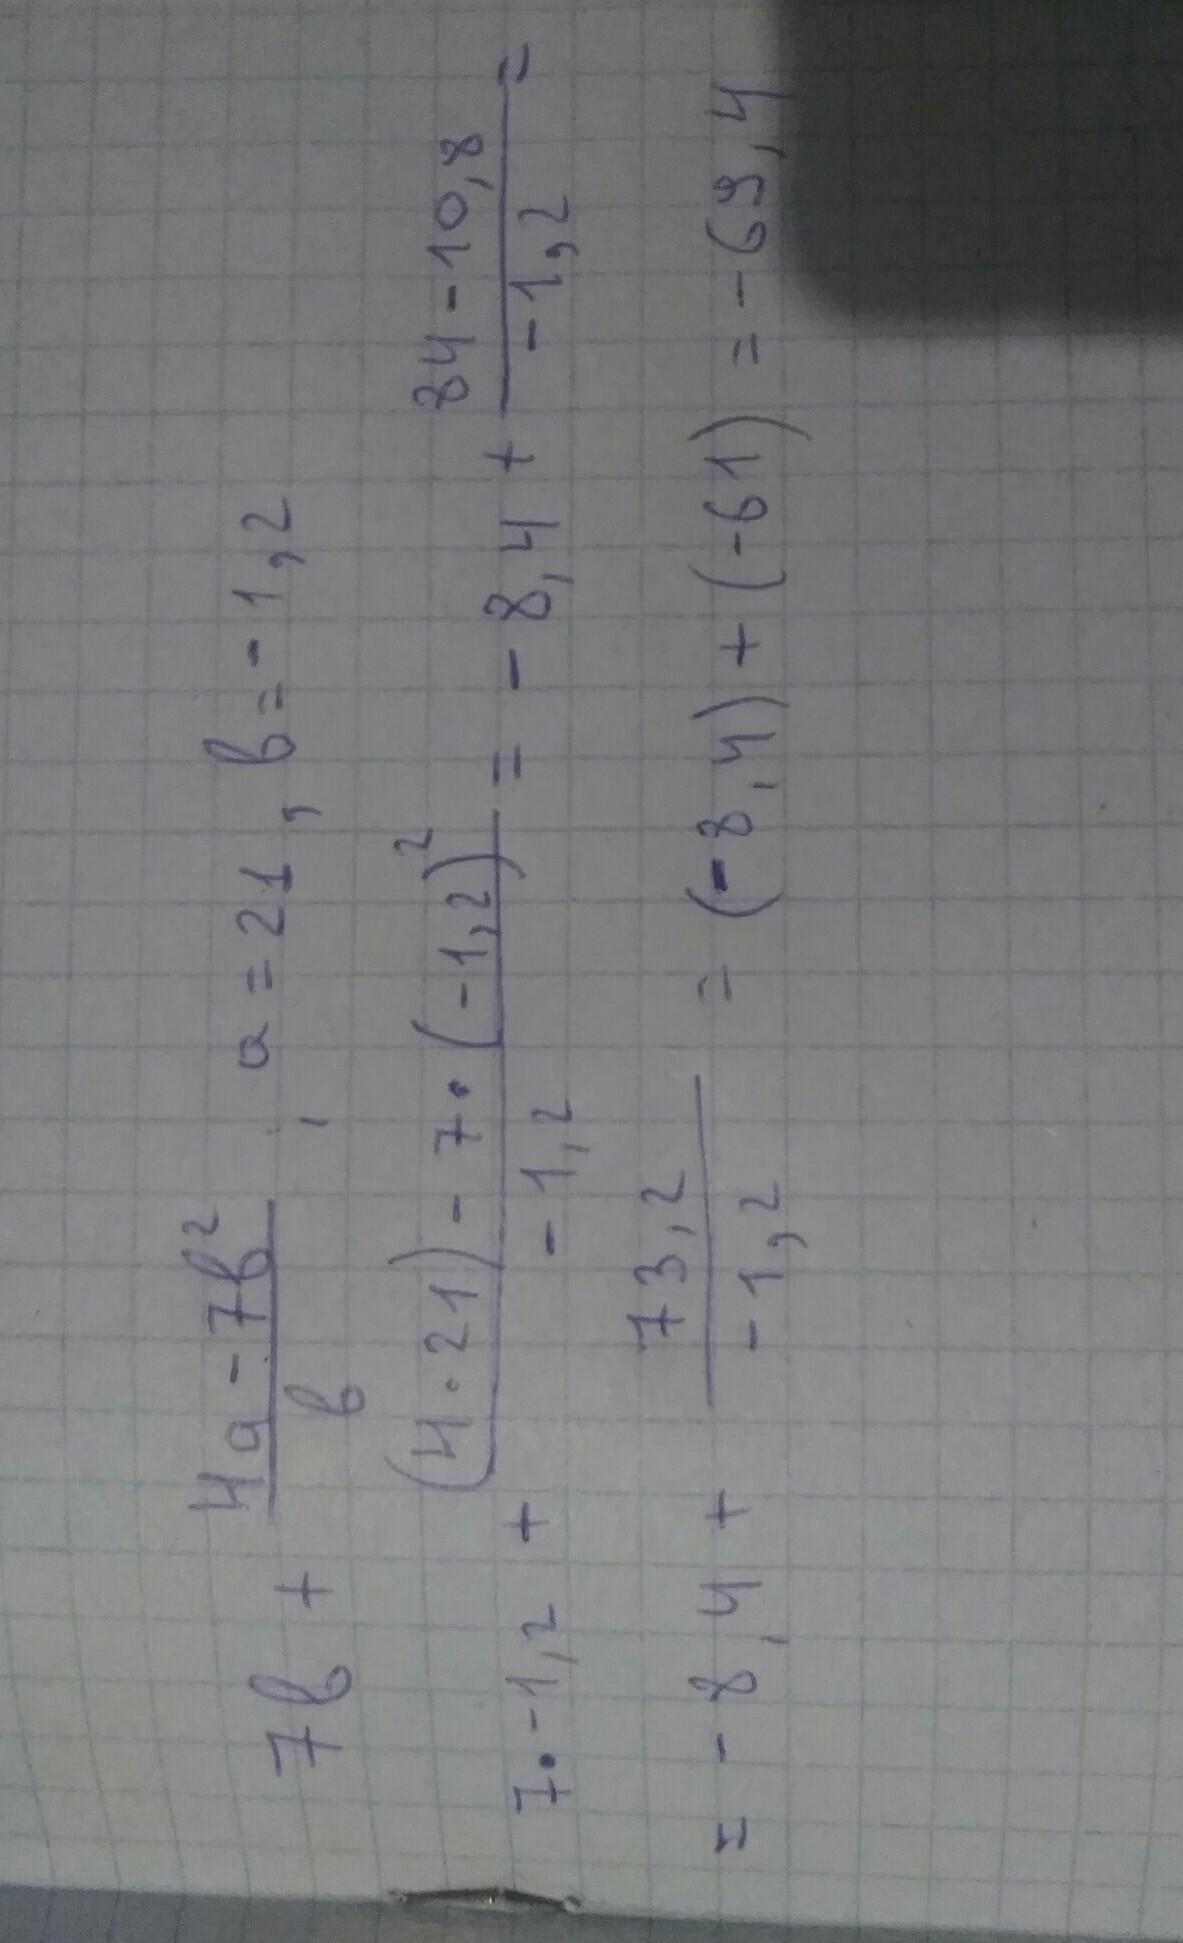 7в + (4а - 7в²)/в, а = 21, в = -1,2
7·-1,2 + ((4·21) - 7·(-1,2)²)/(-1,2) = -8,4 + (84 - 10,8)/(-1,2) =
= -8,4 + 73,2/(-1,2) = (-8,4) + (-61) = -69,4